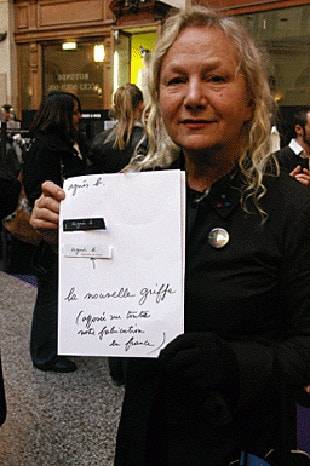 agnès b.
agnès b.
agnès b.
la nouvelle griffe
(apposée sur toute
notre fabrication
en france)
ROTONDE